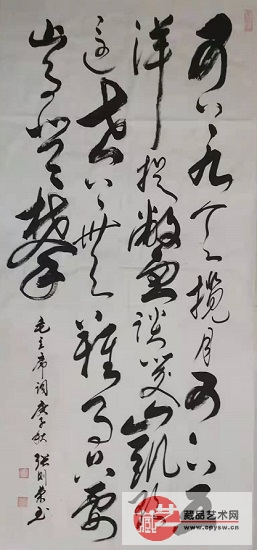 可上九天揽月可下五
洋捉鳖谈笑凯歌
还世上无难事只要
肯登攀
毛主席词庚子秋 张
藏品艺术网
www.cpysw.cn